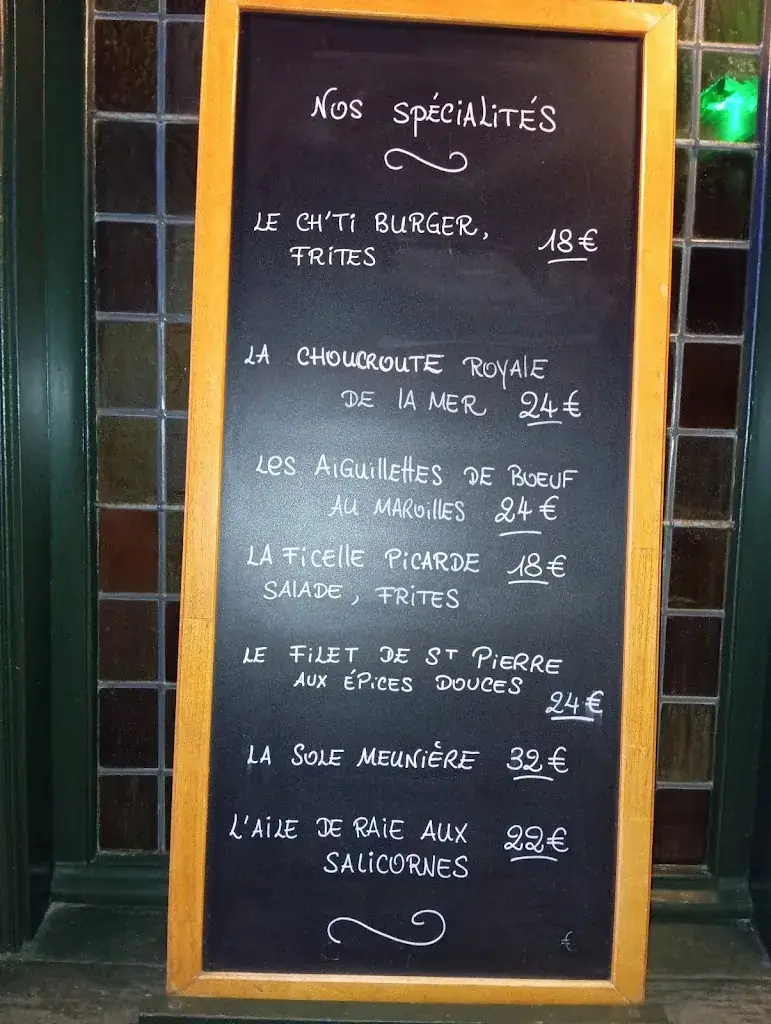 NOS SPÉCIALITÉS
LE CH'TI BURGER,
FRITES 18€
LA CHOUCROUTE ROYALE
DE LA MER 24€
LES AIGUILLETTES DE BOEUF
AU MAROILLES 24€
LA FICELLE PICARDE 18€
SALADE, FRITES
LE FILET DE ST PIERRE
AUX ÉPICES DOUCES
24€
LA SOLE MEUNIÈRE 32€
L'AILE DE RAIE AUX 22€
SALICORNES
€